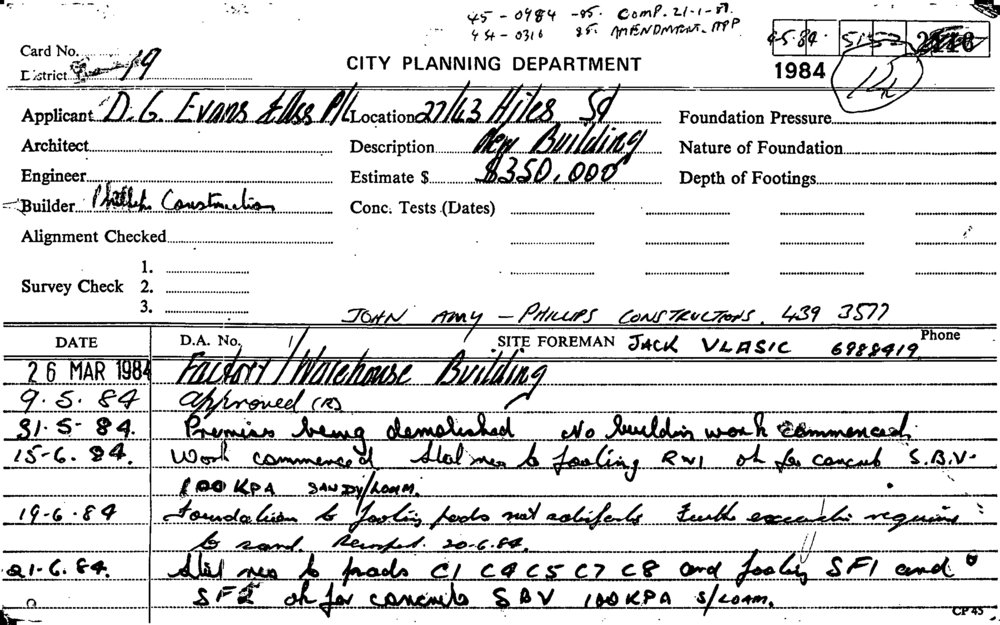 45-0984 -85. COMP. 21-1-87.
45-0316 85. AMENDMENT. APP
Card No.
District 19
CITY PLANNING DEPARTMENT
9.5.84. 5152
1984
Applicant D. G. Evans & Ass P/L Location 27/63 Hiles St Foundation Pressure
Architect Description New Building Nature of Foundation
Engineer Estimate $ $350,000 Depth of Footings
Builder Phillips Construction Conc. Tests (Dates)
Alignment Checked
1.
Survey Check 2.
3.
JOHN AMY - PHILLIPS CONSTRUCTIONS. 439 3577
DATE D.A. No. SITE FOREMAN JACK VLASIC 6988419 Phone
26 MAR 1984 Factory/Warehouse Building
9.5.84 approved (R)
31.5-84. Premises being demolished No building work commenced.
15-6.84. Work commenced Steel mes to footing RW1 ok for concrete S.B.V.
100 KPA SANDY/LOAM.
19-6-84 Foundation to footing pads not satisfactory Further excavation required
to sand. 20-6.84.
21-6.84. Steel mes to pads C1 C4 C5 C7 C8 and footing SF1 and
SF2 ok for concrete SBV 100KPA S/LOAM.
CP 45